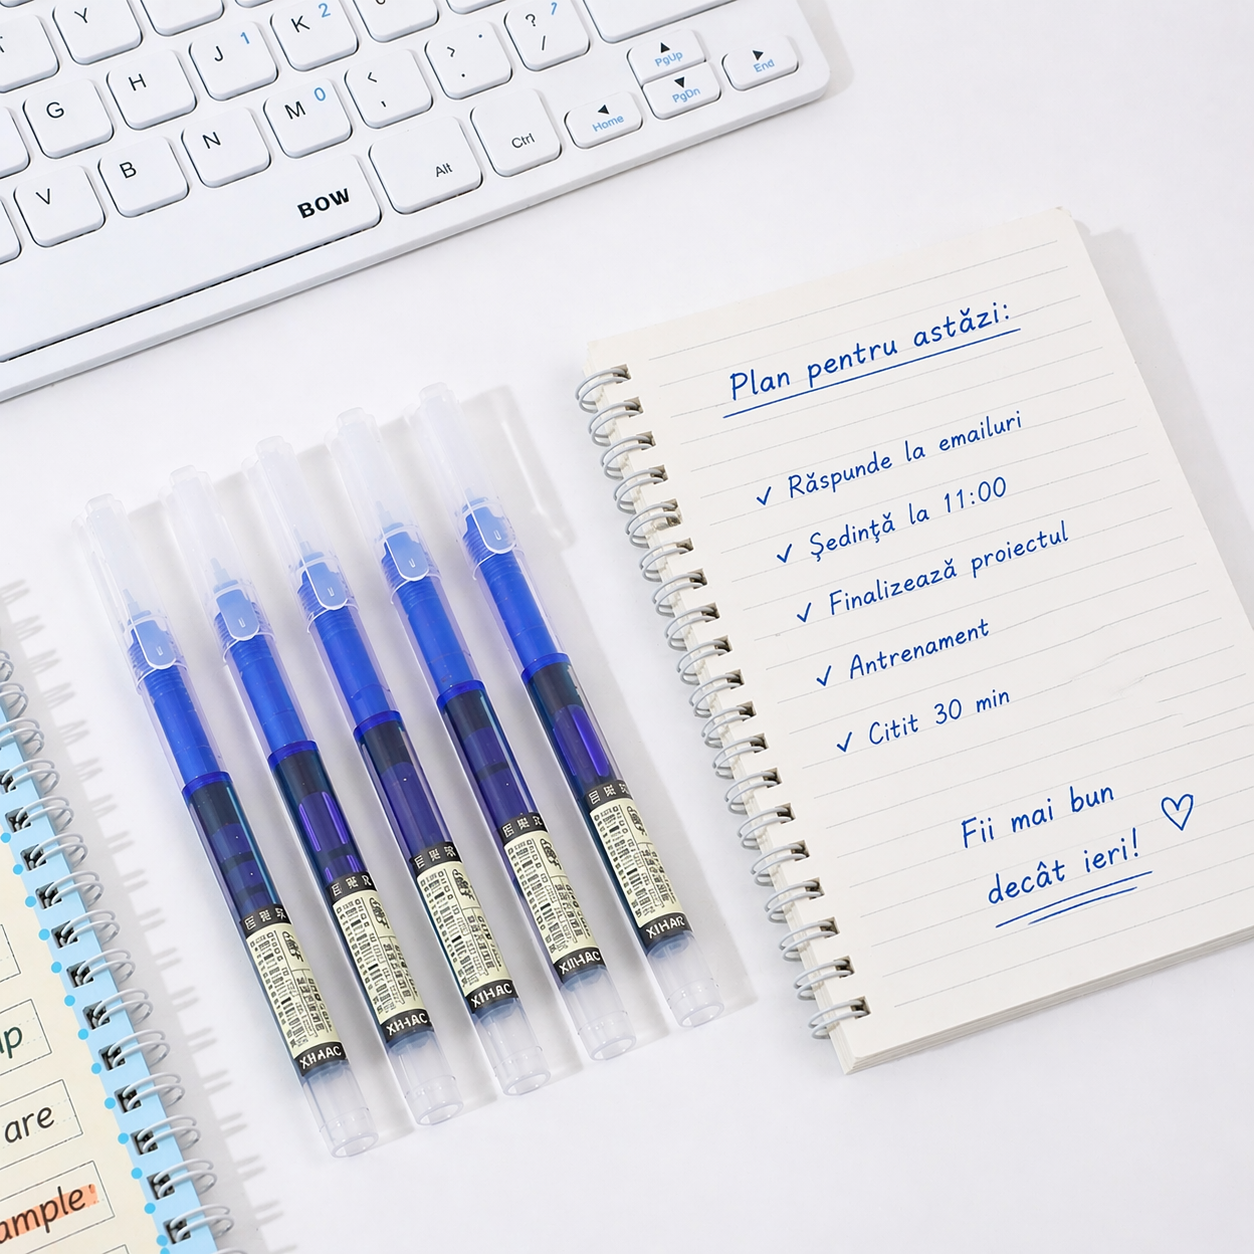 Y
K 2
? 7
/
J 1
>
.
PgUp
End
G
H
M 0
<
,
PgDn
Home
V
B
N
Alt
Ctrl
BOW
Plan pentru astăzi:
✓ Răspunde la emailuri
✓ Ședință la 11:00
✓ Finalizează proiectul
✓ Antrenament
✓ Citit 30 min
Fii mai bun
decât ieri!
XIHAC
are